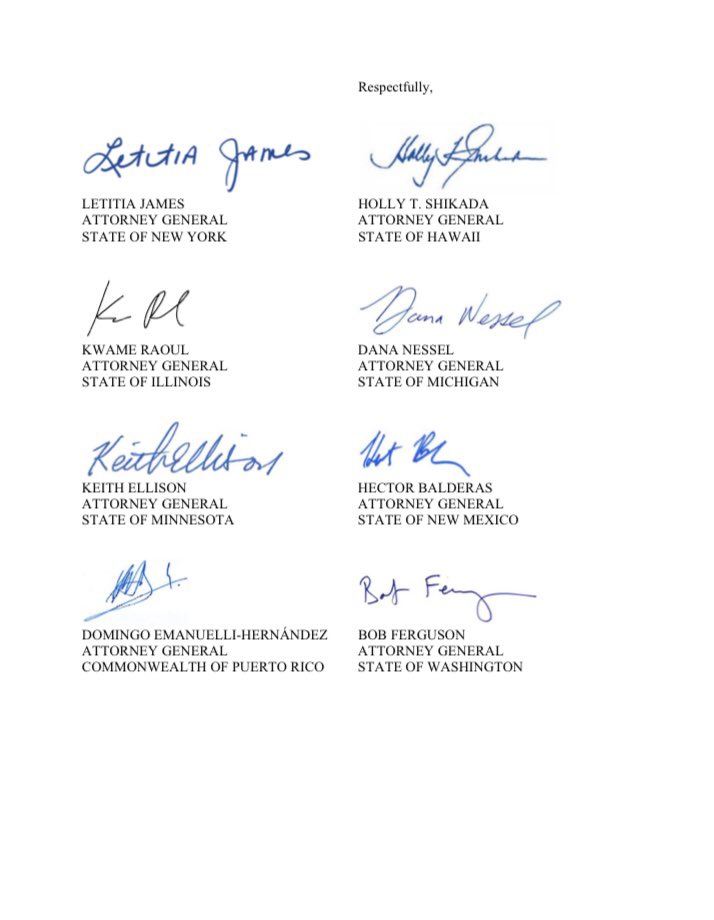 Respectfully,
Letitia James
LETITIA JAMES
ATTORNEY GENERAL
STATE OF NEW YORK
Holly T. Shikada
HOLLY T. SHIKADA
ATTORNEY GENERAL
STATE OF HAWAII
KWAME RAOUL
ATTORNEY GENERAL
STATE OF ILLINOIS
Dana Nessel
DANA NESSEL
ATTORNEY GENERAL
STATE OF MICHIGAN
Keith Ellison
KEITH ELLISON
ATTORNEY GENERAL
STATE OF MINNESOTA
HECTOR BALDERAS
ATTORNEY GENERAL
STATE OF NEW MEXICO
DOMINGO EMANUELLI-HERNÁNDEZ
ATTORNEY GENERAL
COMMONWEALTH OF PUERTO RICO
Bob
BOB FERGUSON
ATTORNEY GENERAL
STATE OF WASHINGTON